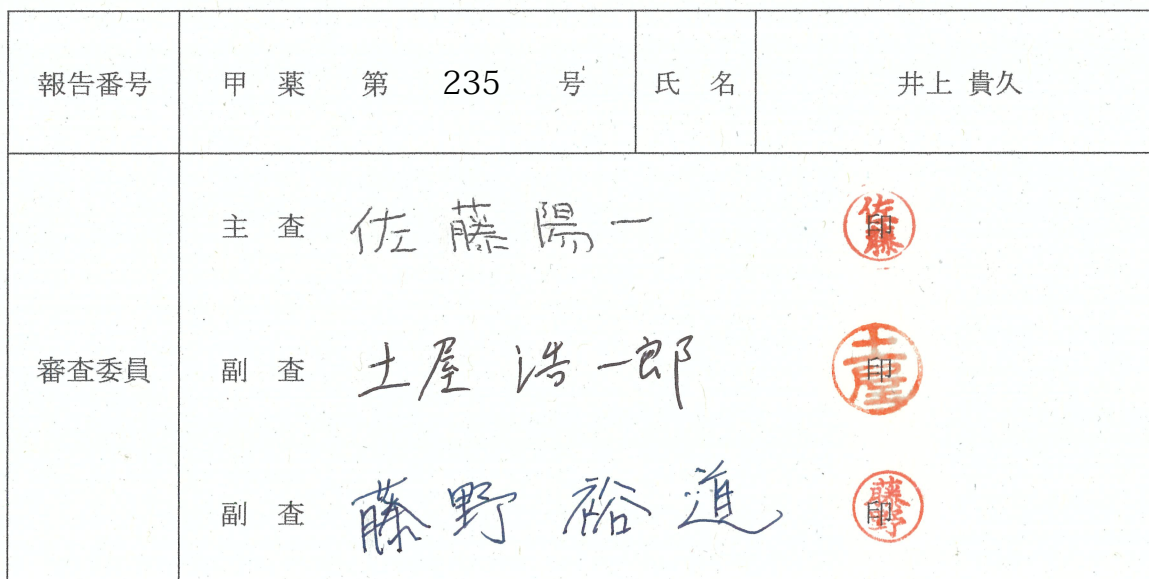 報告番号 甲 薬 第 235 号 氏 名 井上 貴久
審査委員
主 査 佐藤陽一 印 佐藤
副 査 土屋 浩一郎 印 土屋
副 査 藤野 裕道 印 藤野